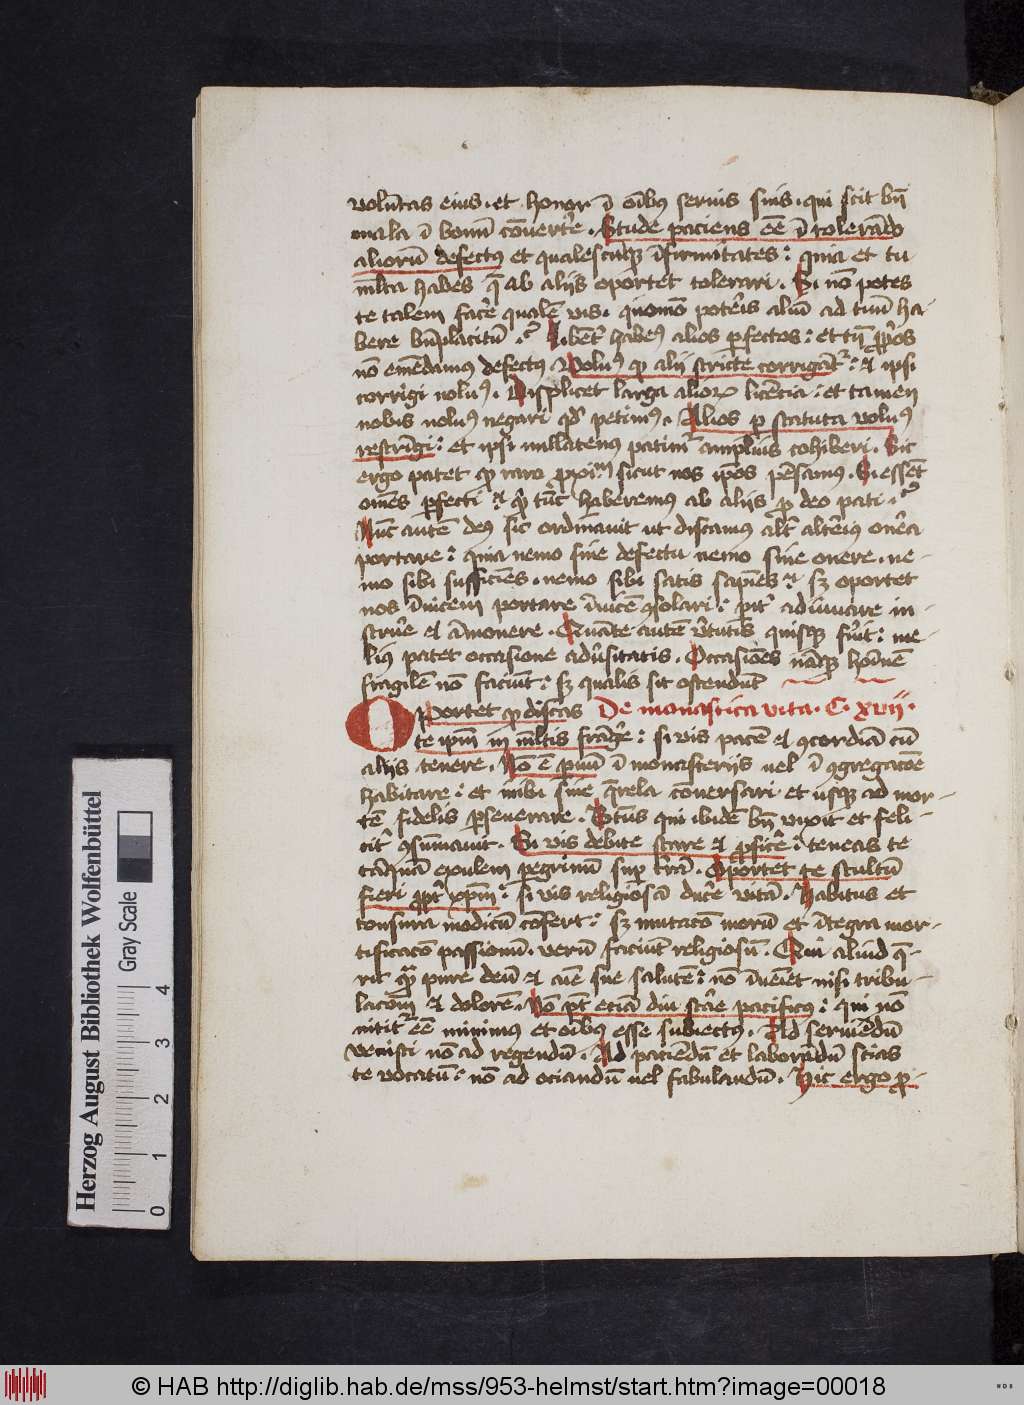 volu̅tas eius · et honor i̅ oi̅bus seruis suis · qui scit bn̅
mala i̅ bonu̅ co̅uert'e · Stude paciens ee̅ i̅ tolera̅do
alioru̅ defectus et qualescu̅qꝫ i̅firmitates : quia et tu
ml̅ta habes q̅ ab aliis oportet tolerari · Si no̅ potes
te talem fac'e quale̅ vis · quomo̅ pot'eris aliu̅ ad tuu̅ ha-
bere bn̅placitu̅ · Libe̅t' habem9 alios ꝑfectos : et tn̅ ꝓp'os
no̅ eme̅damus defectus Volu9 qꝫ alii stricte corriga̅t' : et ipsi
corrigi nolu9 · Displicet larga alioꝝ lice̅cia : et tamen
nobis nolu9 negari qd' petim9 · Alios ꝑ statuta volu9
restri̅gi : et ipsi nullatenus patim' amplius cohiberi · Sic
ergo patet qꝫ raro ꝓxi̅m sicut nos ip̅os pe̅samus · Si esse̅t
om̅es ꝑfecti : q'd tu̅c haberemus ab aliis ꝓ deo pati ·
Nu̅c aute̅ deus sic ordinauit ut discamus alt' alt'ius on'a
portare : quia nemo sine defectu nemo sine onere · ne-
mo sibi sufficie̅s · nemo sibi satis sapie̅s : sꝫ oportet
nos i̅uicem portare i̅uice̅ ꝯsolari : pit' adiuuare in-
stru'e et a̅monere · Qua̅te aute̅ v'tutis quisqꝫ fu'it : me-
lius patet occasione adu'sitatis · Occasio̅es na̅qꝫ ho̅ine̅
fragile̅ no̅ faciu̅t : sꝫ qualis sit oste̅du̅t
Oportet qꝫ discas De monastica vita · C · xvii ·
te ip̅m in ml̅tis fra̅g'e : si vis pace̅ et ꝯcordia̅ cu̅
aliis tenere · No̅ e̅ ꝑuu̅ i̅ monasteriis uel i̅ ꝯgregaco̅e
habitare : et inibi sine q̅rela co̅uersari et usqꝫ ad mor-
te̅ fidelis ꝑseuerare · Bt̅us qui ibide̅ bn̅ vixit et feli-
cit' ꝯsu̅mauit · Si vis debite stare et ꝓfic'e : teneas te
ta̅qua̅ exulem ꝑegrinu̅ sup t'ra̅ · Oportet te stultu̅
fieri ꝓpt' xp̅m : si vis religiosa̅ duc'e vita̅ · Habitus et
tonsura modicu̅ co̅fert : sꝫ mutaco̅ moru̅ et i̅tegra mor-
tificaco̅ passionu̅ · veru̅ faciu̅t religiosu̅ · Qui aliud q̅-
rit qua̅ pure deu̅ et a̅ie sue salute̅ : no̅ i̅ueiet nisi tribu-
lacom̅ et dolore̅ · No̅ pt̅ etia̅ diu sta̅re pacificus : qui no̅
nitit' ee̅ minimus et oi̅bus esse subiectus · Ad seruie̅du̅
venisti no̅ ad regendu̅ · Ad pacie̅du̅ et labora̅du̅ scias
te vocatu̅ : no̅ ad ociandu̅ uel fabulandu̅ · Hic ergo ꝓ-
Herzog August Bibliothek Wolfenbüttel
Gray Scale
0 1 2 3 4
© HAB http://diglib.hab.de/mss/953-helmst/start.htm?image=00018